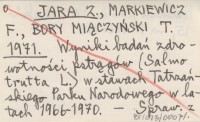 0 JARA Z., MARKIEWICZ
F., BORY MIĄCZYŃSKI T.
1971. Wyniki badań zdro-
wotności pstrągów (Salmo
trutta L.) w stawach Tatrzań-
skiego Parku Narodowego w la-
tach 1966-1970, – Spraw. z